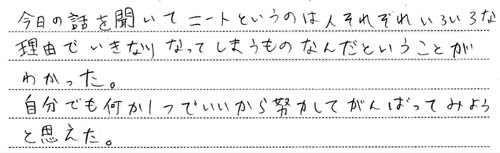 今日の話を聞いてニートというのは人それぞれいろいろな
理由でいきなりなってしまうものなんだということが
わかった。
自分でも何か1つでいいから努力してがんばってみよう
と思えた。